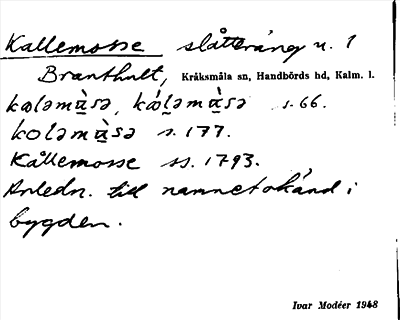 Kallemosse slåtteräng n. 1
Branthult, Kråksmåla sn, Handbörds hd, Kalm. l.
kaləmὰsə, kál̥əmὰsə s. 66.
koləmὰsə s. 177.
Kållemosse ss. 1793.
Anledn. till namnet okänd i
bygden.
Ivar Modéer 1948